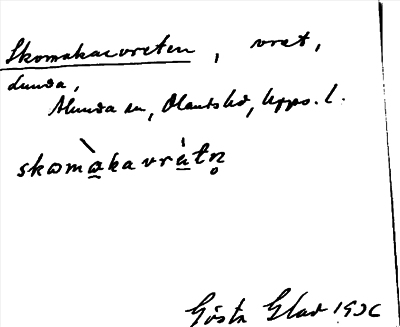 Skomakarvreten, vret,
Lunda,
Alunda sn, Olands hd, Upps. l.
skomakavrätn̥
Gösta Glad 1936